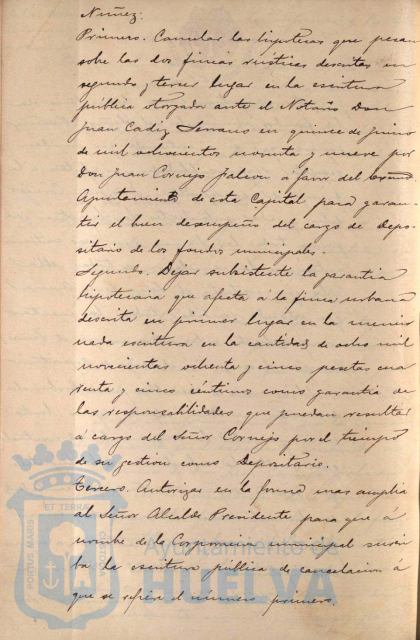 Nuñez:
Primero. Cancelar las hipotecas que pesan
sobre las dos fincas rústicas descritas en
segundo y tercer lugar en la escritura
pública otorgada ante el Notario Don
Juan Cadiz Serrano en quince de Junio
de mil ochocientos noventa y nueve por
Don Juan Cornejo á favor del Excmo.
Ayuntamiento de esta Capital para garan-
tir el buen desempeño del cargo de Depo-
sitario de los fondos municipales.
Segundo. Dejar subsistente la garantia
hipotecaria que afecta á la finca urbana
descrita en primer lugar en la mencio
nada escritura en la cantidad de ocho mil
novecientas ochenta y cinco pesetas cua
renta y cinco céntimos como garantia de
las responsabilidades que puedan resultar
á cargo del Señor Cornejo por el tiempo
de su gestion como Depositario.
Tercero. Autorizar en la forma mas amplia
al Señor Alcalde Presidente para que á
nombre de la Corporacion municipal suscri
ba la escritura pública de cancelacion á
que se refiere el número primero.
PORTUS MARIS
ET TERRAE
Ayuntamiento de
HUELVA